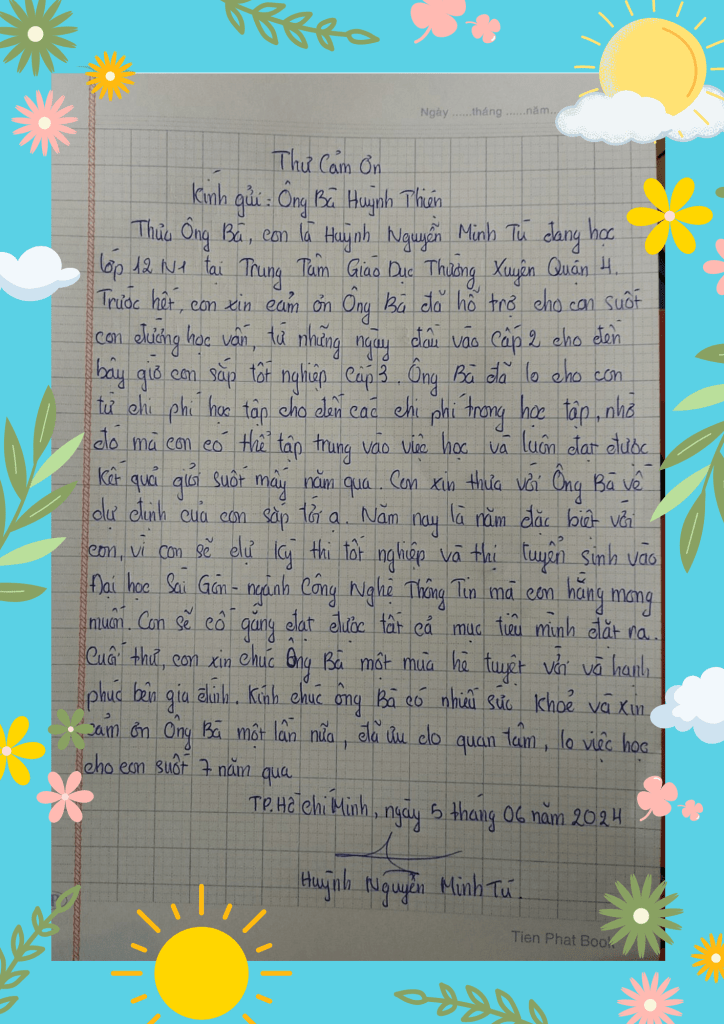 Ngày ......tháng ......năm..
Thư Cảm Ơn
Kính gửi: Ông Bà Huỳnh Thiên
Thưa Ông Bà, con là Huỳnh Nguyễn Minh Tú đang học
lớp 12N1 tại Trung Tâm Giáo Dục Thường Xuyên Quận 4.
Trước hết, con xin cảm ơn Ông Bà đã hỗ trợ cho con suốt
con đường học vấn, từ những ngày đầu vào Cấp 2 cho đến
bây giờ con sắp tốt nghiệp Cấp 3. Ông Bà đã lo cho con
từ chi phí học tập cho đến các chi phí trong học tập, nhờ
đó mà con có thể tập trung vào việc học và luôn đạt được
kết quả giỏi suốt mấy năm qua. Con xin thưa với Ông Bà về
dự định của con sắp tới ạ. Năm nay là năm đặc biệt với
con, vì con sẽ dự kỳ thi tốt nghiệp và thi tuyển sinh vào
Đại học Sài Gòn - ngành Công Nghệ Thông Tin mà con hằng mong
muốn. Con sẽ cố gắng đạt được tất cả mục tiêu mình đặt ra.
Cuối thư, con xin chúc Ông Bà một mùa hè tuyệt vời và hạnh
phúc bên gia đình. Kính chúc ông Bà có nhiều sức khoẻ và xin
cảm ơn Ông Bà một lần nữa, đã ưu do quan tâm, lo việc học
cho con suốt 7 năm qua
TP.Hồ Chí Minh, ngày 5 tháng 06 năm 2024
Huỳnh Nguyễn Minh Tú.
Tien Phat Book